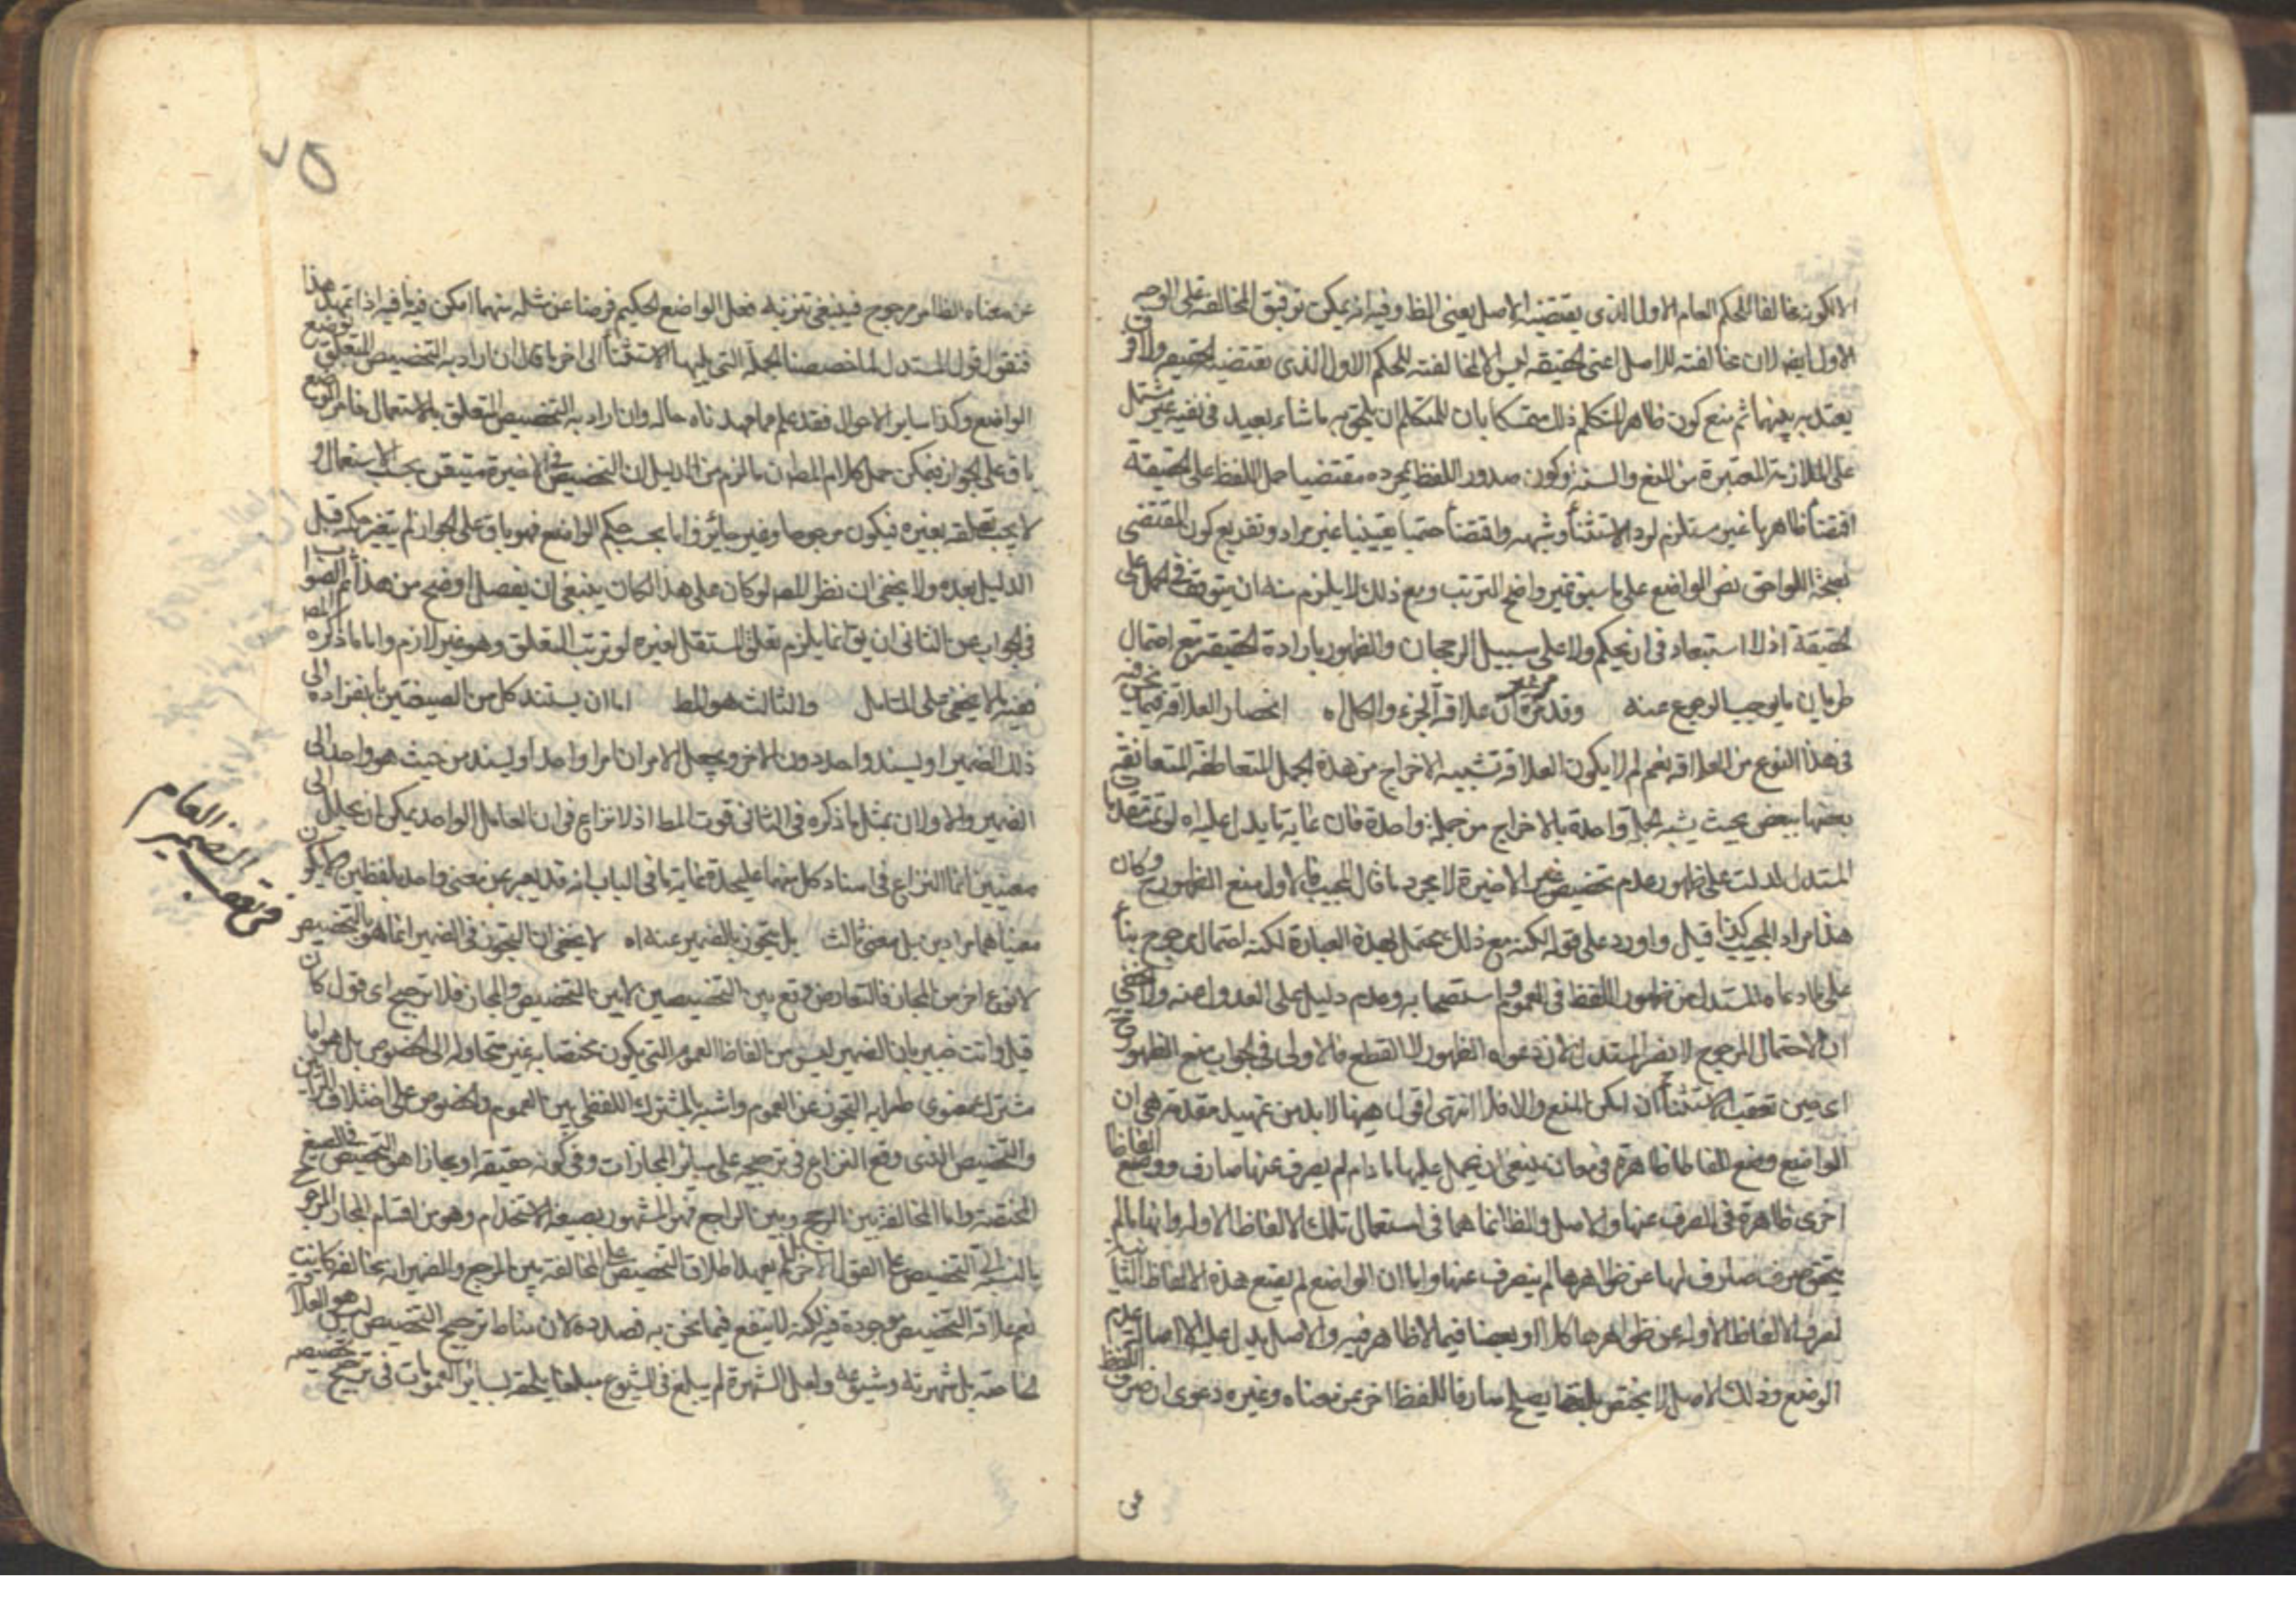 الا لكونه مخالفا للحكم العام الاول الذى يقتضيه الاصل يعنى الظ وفيه انه يمكن توفيق المخالفة على الوجه
الاول ايضا لان مخالفته للاصل اعنى الحقيقة ليس الا لمخالفته للحكم الاول الذى يقتضيه الحقيقة ولا فرق
يعتد به بينهما ثم منع كون ظاهر المتكلم ذلك متمسكا بان للمتكلم ان يلحق به ما شاء بعيد فى نفسه غير مشتمل
على الملازمة المعتبرة بين المنع والسند وكون صدور اللفظ بمجرده مقتضيا حمل اللفظ على الحقيقة
اقتضاء ظاهريا غير مستلزم لورد الاستثناء وشبهه واقتضاء حتميا يقينيا غير مراد وتفريع كون المقتضى
لصحة اللواحق نص الواضع على ما سبق غير واضح الترتب ومع ذلك لا يلزم منه ان يتوقف فى الحمل على
الحقيقة اذ لا استبعاد فى ان يحكم ولا على سبيل الرجحان والظهور بارادة الحقيقة مع احتمال
طريان ما يوجب الرجوع عنه وقد علاقة الجزء والكل اه انحصار العلاقة فيما نحن فيه
فى هذا النوع من العلاقة نعم لم لا يكون العلاقة تشبيه الاخراج من هذه الجمل المتعاطفة المتعانقة
بعضها ببعض بحيث يشبه الجملة واحدة بالاخراج من جملة واحدة فان غاية ما يدل عليه اه لو تمت مقدمات
المستدل لدلت على ظهور عدم تخصيص غير الاخيرة لا بمجرد ما قال المجيب فالاولى منع الظهور وكان
هذا مراد المجيب كذا قيل واورد على قوله لكنه مع ذلك محتمل لهذه العبارة لكنه احتمال مرجوح بناء
على ما ادعاه المستدل من ظهور اللفظ فى العموم واستصحابه وعدم دليل على العدول عنه ولا يخفى
ان الاحتمال المرجوح لا يضر المستدل لان دعواه الظهور لا القطع فالاولى فى الجواب منع الظهور
اى حين تعقب الاستثناء ان امكن المنع والا فلا انتهى اقول ههنا لا بد من تمهيد مقدمة هى ان
الواضع وضع الفاظا ظاهرة فى معان ينبغى ان يحمل عليها ما دام لم يصرف عنها صارف ووضع الفاظا
اخرى ظاهرة فى الصرف عنها والاصل والظ انما هما فى استعمال تلك الالفاظ الاولى وانها ما لم
يتحقق صرف صارف لها عن ظواهرها لم ينصرف عنها واما ان الواضع لم يضع هذه الالفاظ الثانية
لصرف الالفاظ الاولى عن ظواهرها كلا او بعضا فيما لا ظاهر فيه والاصل يدل عليه الا اصالة عدم
الوضع وذلك الاصل لا يختص بلفظ يصلح صارفا للفظ اخر عن معناه وغيره دعوى ان صرف اللفظ
عن
٧٥
عن معناه الظاهر مرجوح فينبغى تنزيه فعل الواضع الحكيم فرضا عن مثله مهما امكن فيه ما فيه اذا تمهد هذا
فنقول قول المستدل لما خصصنا الجملة التى يليها الاستثناء الى اخره ما قال ان اراد به التخصيص المتعلق بوضع
الواضع وكذا ساير الاحوال فقد علم مما مهدناه حاله وان اراد به التخصيص المتعلق بالاستعمال فالوضع
باق على الجواز فيمكن حمل كلام المص ان ما لزم من الدليل ان التخصيص فى الاخيرة متيقن بحسب الاستعمال و
لا يجب تعلقه بغيره فيكون مرجوحا وغير جائز واما بحسب حكم الواضع فهو باق على الجواز لم يتغير حكمه قبل
الدليل بعده ولا يخفى ان نظر المص لو كان على هذا لكان ينبغى ان يفصل اوضح من هذا ثم الصواب
فى الجواب عن الثانى ان يق انما يلزم تعلق المستقل بغيره لو ترتب التعلق وهو غير لازم واما ما ذكره المص
ففيه ما لا يخفى على المتامل والثالث هو المط اما ان يستند كل من الصيغتين بانفراده الى
ذلك الضمير او يسند واحد دون الاخر ويجعل الامران امرا واحدا ويسند من حيث هو واحد الى
الضمير والاولان بمثل ما ذكره فى الثانى قوت المط اذ لا نزاع فى ان العامل الواحد يمكن ان يعمل الى
معنيين انما النزاع فى اسناد كل منهما عليحدة غاية ما فى الباب انه قد يعبر عن معنى واحد بلفظين لا يكون
معنياهما مرادين بل معنى ثالث بل يتجوز بالضمير عنه اه لا يخفى ان التجوز فى الضمير انما هو بالتخصيص
لا نوع اخر من المجاز فالتعارض وقع بين التخصيصين لا بين التخصيص والمجاز فلا ترجيح اى قول كان
قيل وانت خبير بان الضمير ليس من الفاظ العموم التى يكون مختصا به غير متجاوز الى الخصوص بل هو اما
مشترك معنوى طرايه التجوز عن العموم واشبه بالمشترك اللفظى بين العموم والخصوص على اختلاف الرأيين
والتخصيص الذى وقع النزاع فى ترجيحه على سائر المجازات وفى كونه حقيقة او مجازا هو التخصيص فى الصيغ
المختصة واما المخالفة بين المرجع وبين الراجع فهو المشهور بصيغة الاستخدام وهو من اقسام المجاز المرجوح
بالنسبة الى التخصيص على القول الاخر لم يعهد اطلاق التخصيص على المخالفة بين المرجع والضمير اية مخالفة كانت
نعم علاقة التخصيص موجودة فيه لكنه لا ينفع فيما نحن بصدده لان مناط ترجيح التخصيص ليس هو العلاقة
الخاصة بل شهرته وشيوعه ولعل الشهرة لم يبلغ فى الشيوع مبلغا يلحقه بسائر العمومات فى ترجيح تخصيصه
الضمير العام